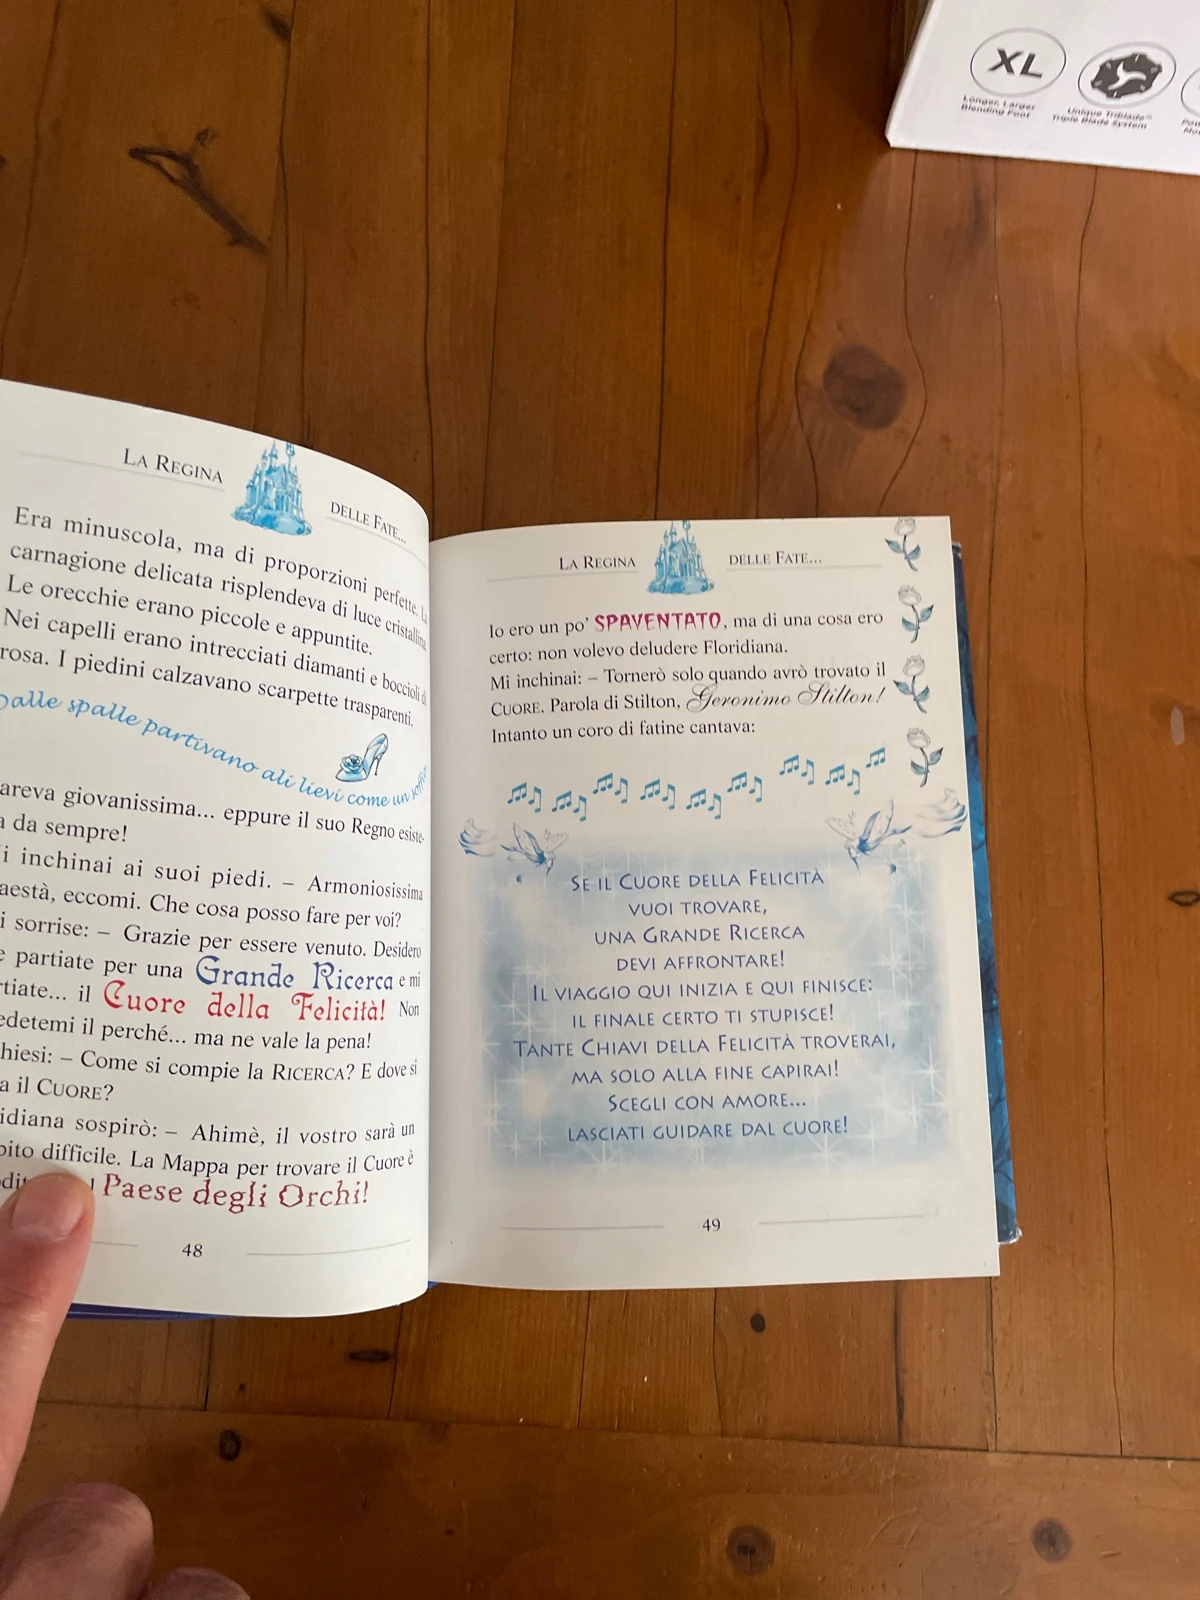 XL
Longer, Larger
Blending Foot
Unique Triblade™
Triple Blade System
LA REGINA DELLE FATE...
Era minuscola, ma di proporzioni perfette. La
carnagione delicata risplendeva di luce cristallina.
Le orecchie erano piccole e appuntite.
Nei capelli erano intrecciati diamanti e boccioli di
rosa. I piedini calzavano scarpette trasparenti.
Dalle spalle partivano ali lievi come un soffio
areva giovanissima... eppure il suo Regno esiste-
a da sempre!
i inchinai ai suoi piedi. – Armoniosissima
aestà, eccomi. Che cosa posso fare per voi?
i sorrise: – Grazie per essere venuto. Desidero
e partiate per una Grande Ricerca e mi
rtiate... il Cuore della Felicità! Non
edetemi il perché... ma ne vale la pena!
hiesi: – Come si compie la RICERCA? E dove si
a il CUORE?
idiana sospirò: – Ahimè, il vostro sarà un
pito difficile. La Mappa per trovare il Cuore è
Paese degli Orchi!
48
LA REGINA DELLE FATE...
Io ero un po' SPAVENTATO, ma di una cosa ero
certo: non volevo deludere Floridiana.
Mi inchinai: – Tornerò solo quando avrò trovato il
CUORE. Parola di Stilton, Geronimo Stilton!
Intanto un coro di fatine cantava:
SE IL CUORE DELLA FELICITÀ
VUOI TROVARE,
UNA GRANDE RICERCA
DEVI AFFRONTARE!
IL VIAGGIO QUI INIZIA E QUI FINISCE:
IL FINALE CERTO TI STUPISCE!
TANTE CHIAVI DELLA FELICITÀ TROVERAI,
MA SOLO ALLA FINE CAPIRAI!
SCEGLI CON AMORE...
LASCIATI GUIDARE DAL CUORE!
49